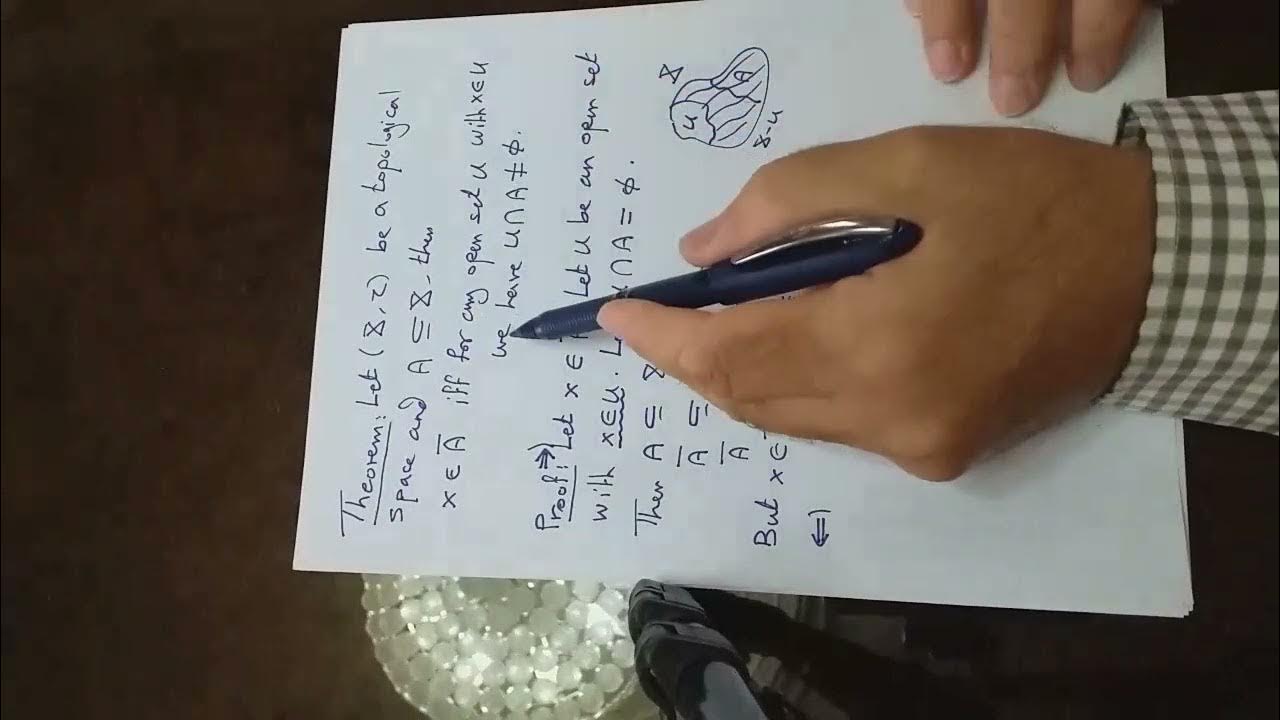 Theorem: Let (X, τ) be a topological
space and A ⊆ X, then
x ∈ A̅ iff for any open set U with x ∈ U
we have U ∩ A ≠ ϕ.
Proof: ⇒) Let x ∈ Let U be an open set
with x ∈ U. ∩ A = ϕ.
Then A ⊆ X
A̅ ⊆
A̅
But x ∈
⇐)
X
U
A
X-U